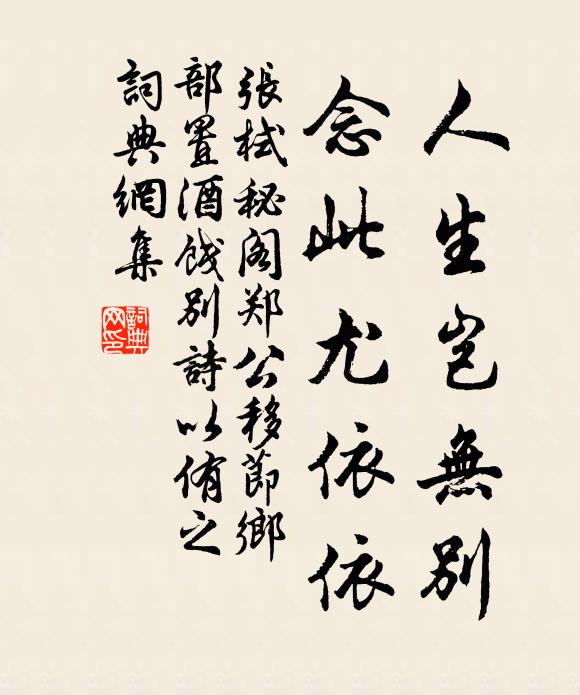 人生岂無別
念此尤依依
張栻秘阁郑公移節鄉
部置酒餞別詩以侑之
詞典網集
詞典网印